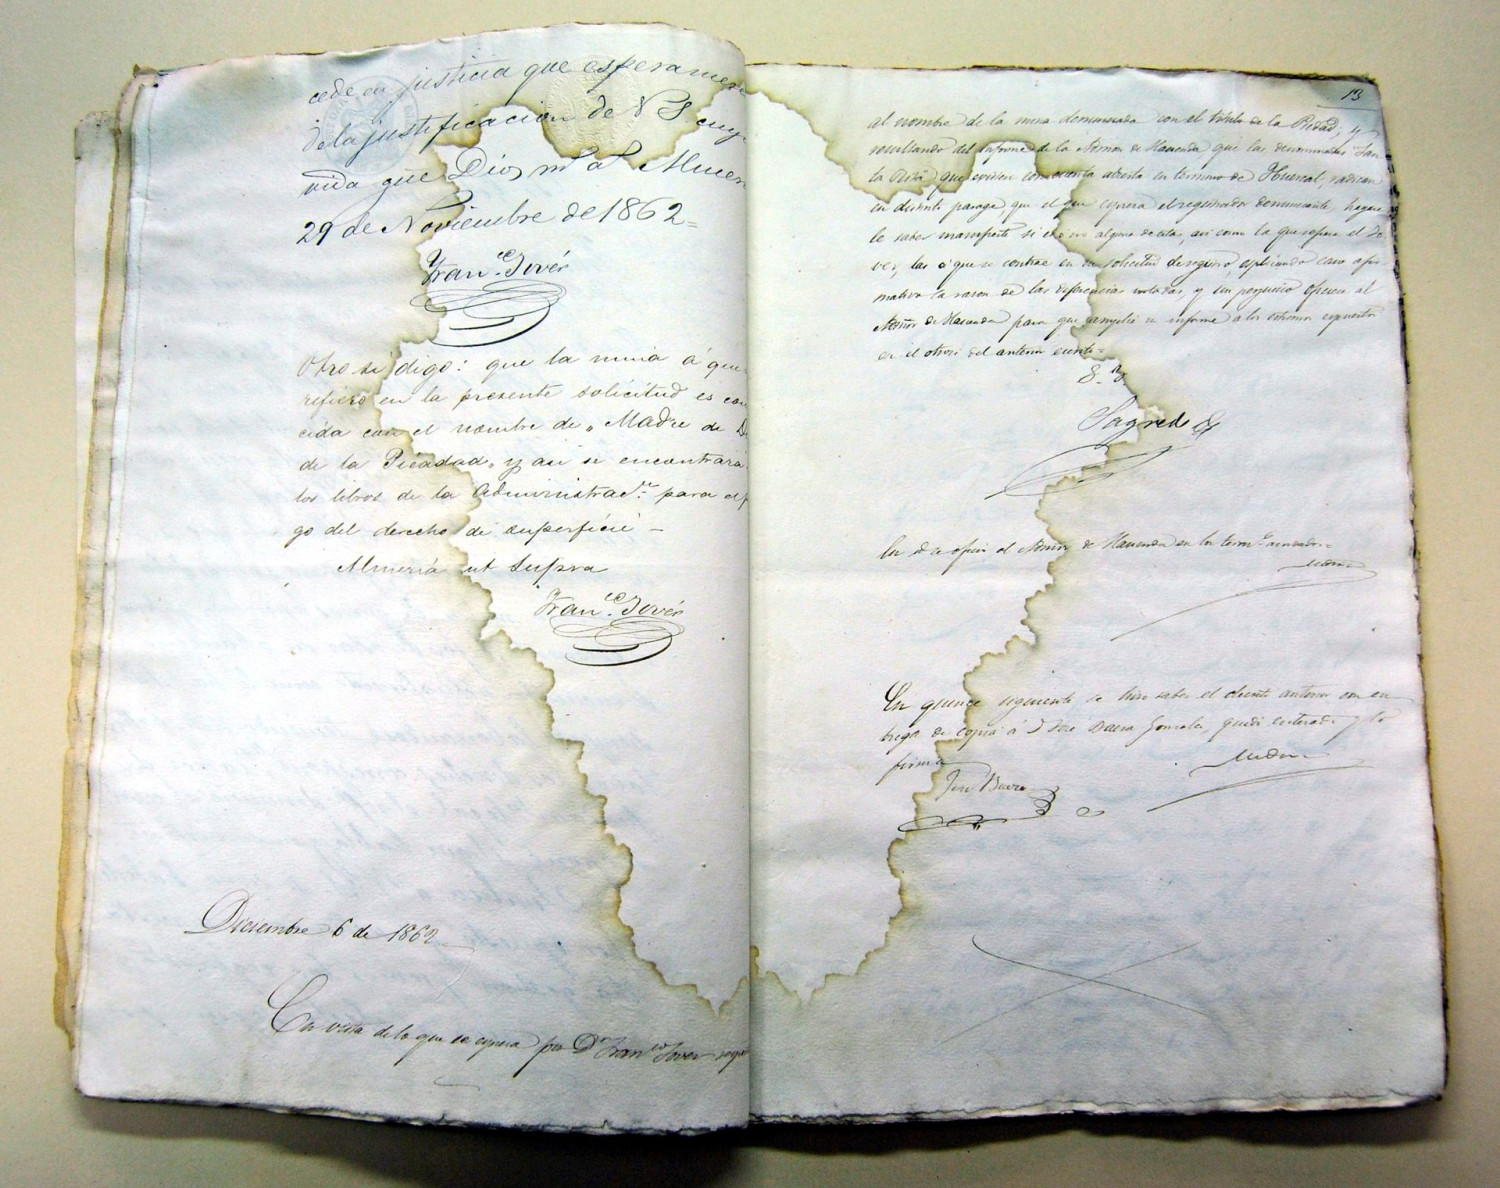 cede en justicia que esperamos
de la justificacion de V S cuya
vida gue Dios m.s a.s Almer
29 de Noviembre de 1862=
Fran.co Jover
Otro si digo: que la mina á que
refiero en la presente solicitud es con
cida con el nombre de "Madre de D
de la Pieadad" y asi se encontrará
los libros de la Administrac.on para el p
go del derecho de superficie —
Almeria ut supra
Fran.co Jover
Diciembre 6 de 1862
En vista de lo que se espresa por D.n Fran.co Jover
13
al nombre de la mina denunciada con el título de la Piedad, y
resultando del informe de la Admon de Hacienda que las denominadas
la Rosa, que ecsisten con cuenta abierta en termino de Huercal, radican
en distinto parage, que el que espresa el registrador denunciante, hagase
le saber manifieste si es alguna de estas, asi como la que refiere el Jo
ver, las á que se contrae en su solicitud de registro, esplicando caso afir
mativo la razon de las diferencias notadas, y sin perjuicio oficiese al
Admor de Hacienda para que amplie su informe a los estremos espuestos
en el otrosi del anterior escrito=
Sagredo
En 9 se ofició al Admor de Hacienda en los term.s acordados=
En quince siguiente se hizo saber el decreto anterior con en
trega de copia á D José Baeza Gonzalez quedó enterado y lo
firma
José Baeza